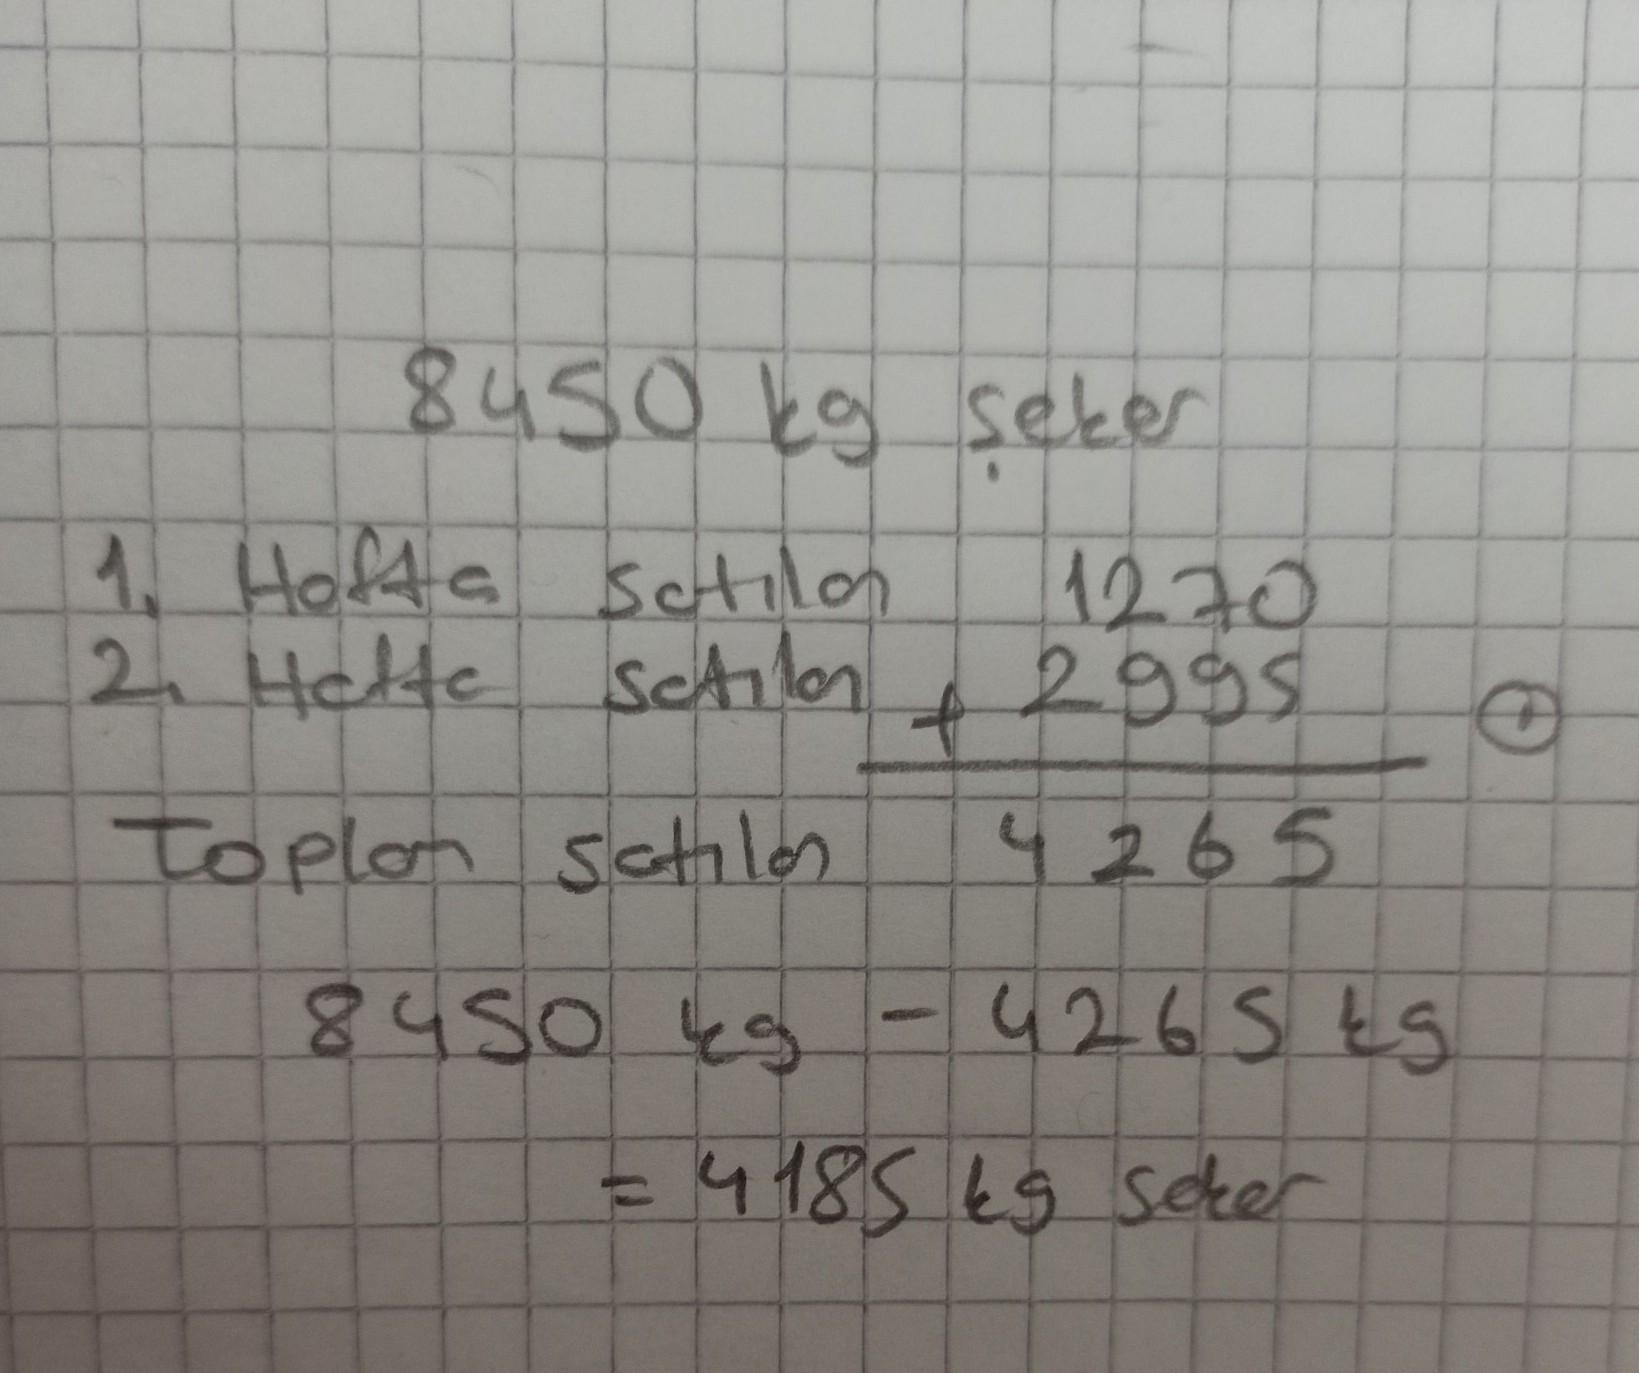 8450 kg şeker
1. Hafta satılan 1270
2. Hafta satılan + 2995 +
Toplan satılan 4265
8450 kg - 4265 kg
= 4185 kg seker